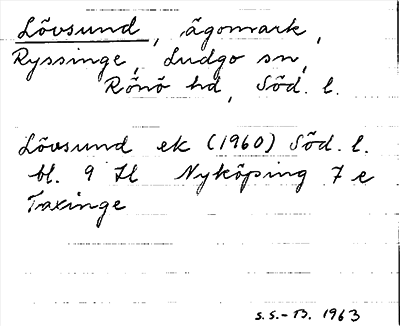 Lövsund, ägomark,
Ryssinge, Ludgo sn,
Rönö hd, Söd. l.
Lövsund ek (1960) Söd. l.
bl. 9 Il Nyköping 7 e
Taxinge
S.S.-B. 1963